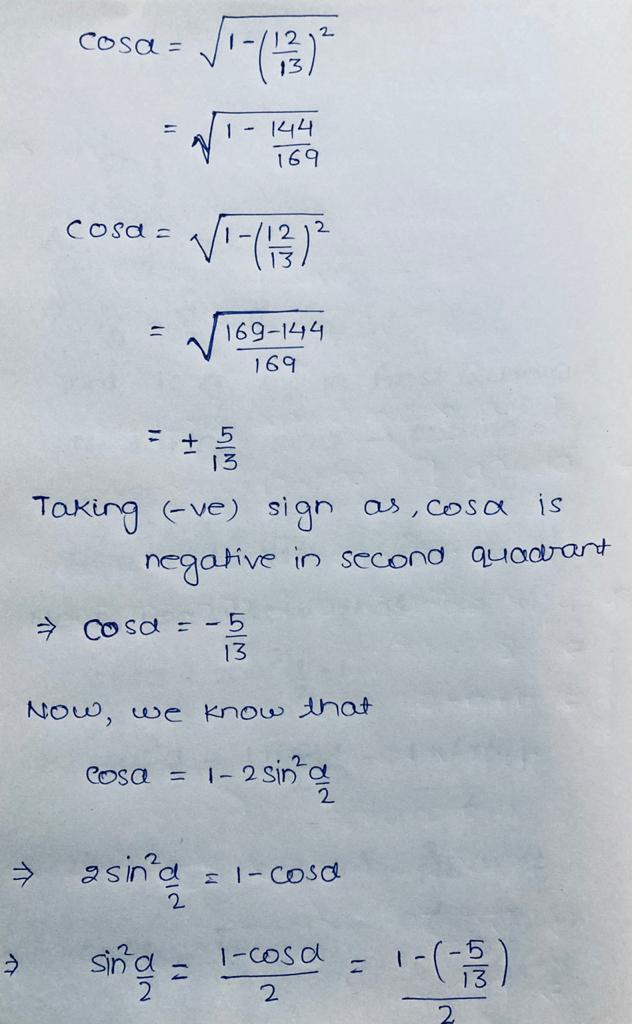 cosα = √(1-(12/13)²)
= √(1 - 144/169)
cosα = √(1-(12/13)²)
= √((169-144)/169)
= ± 5/13
Taking (-ve) sign as, cosα is
negative in second quadrant
⇒ cosα = - 5/13
Now, we know that
cosα = 1 - 2 sin² α/2
⇒ 2 sin² α/2 = 1 - cosα
⇒ sin² α/2 = (1-cosα)/2 = (1-(-5/13))/2